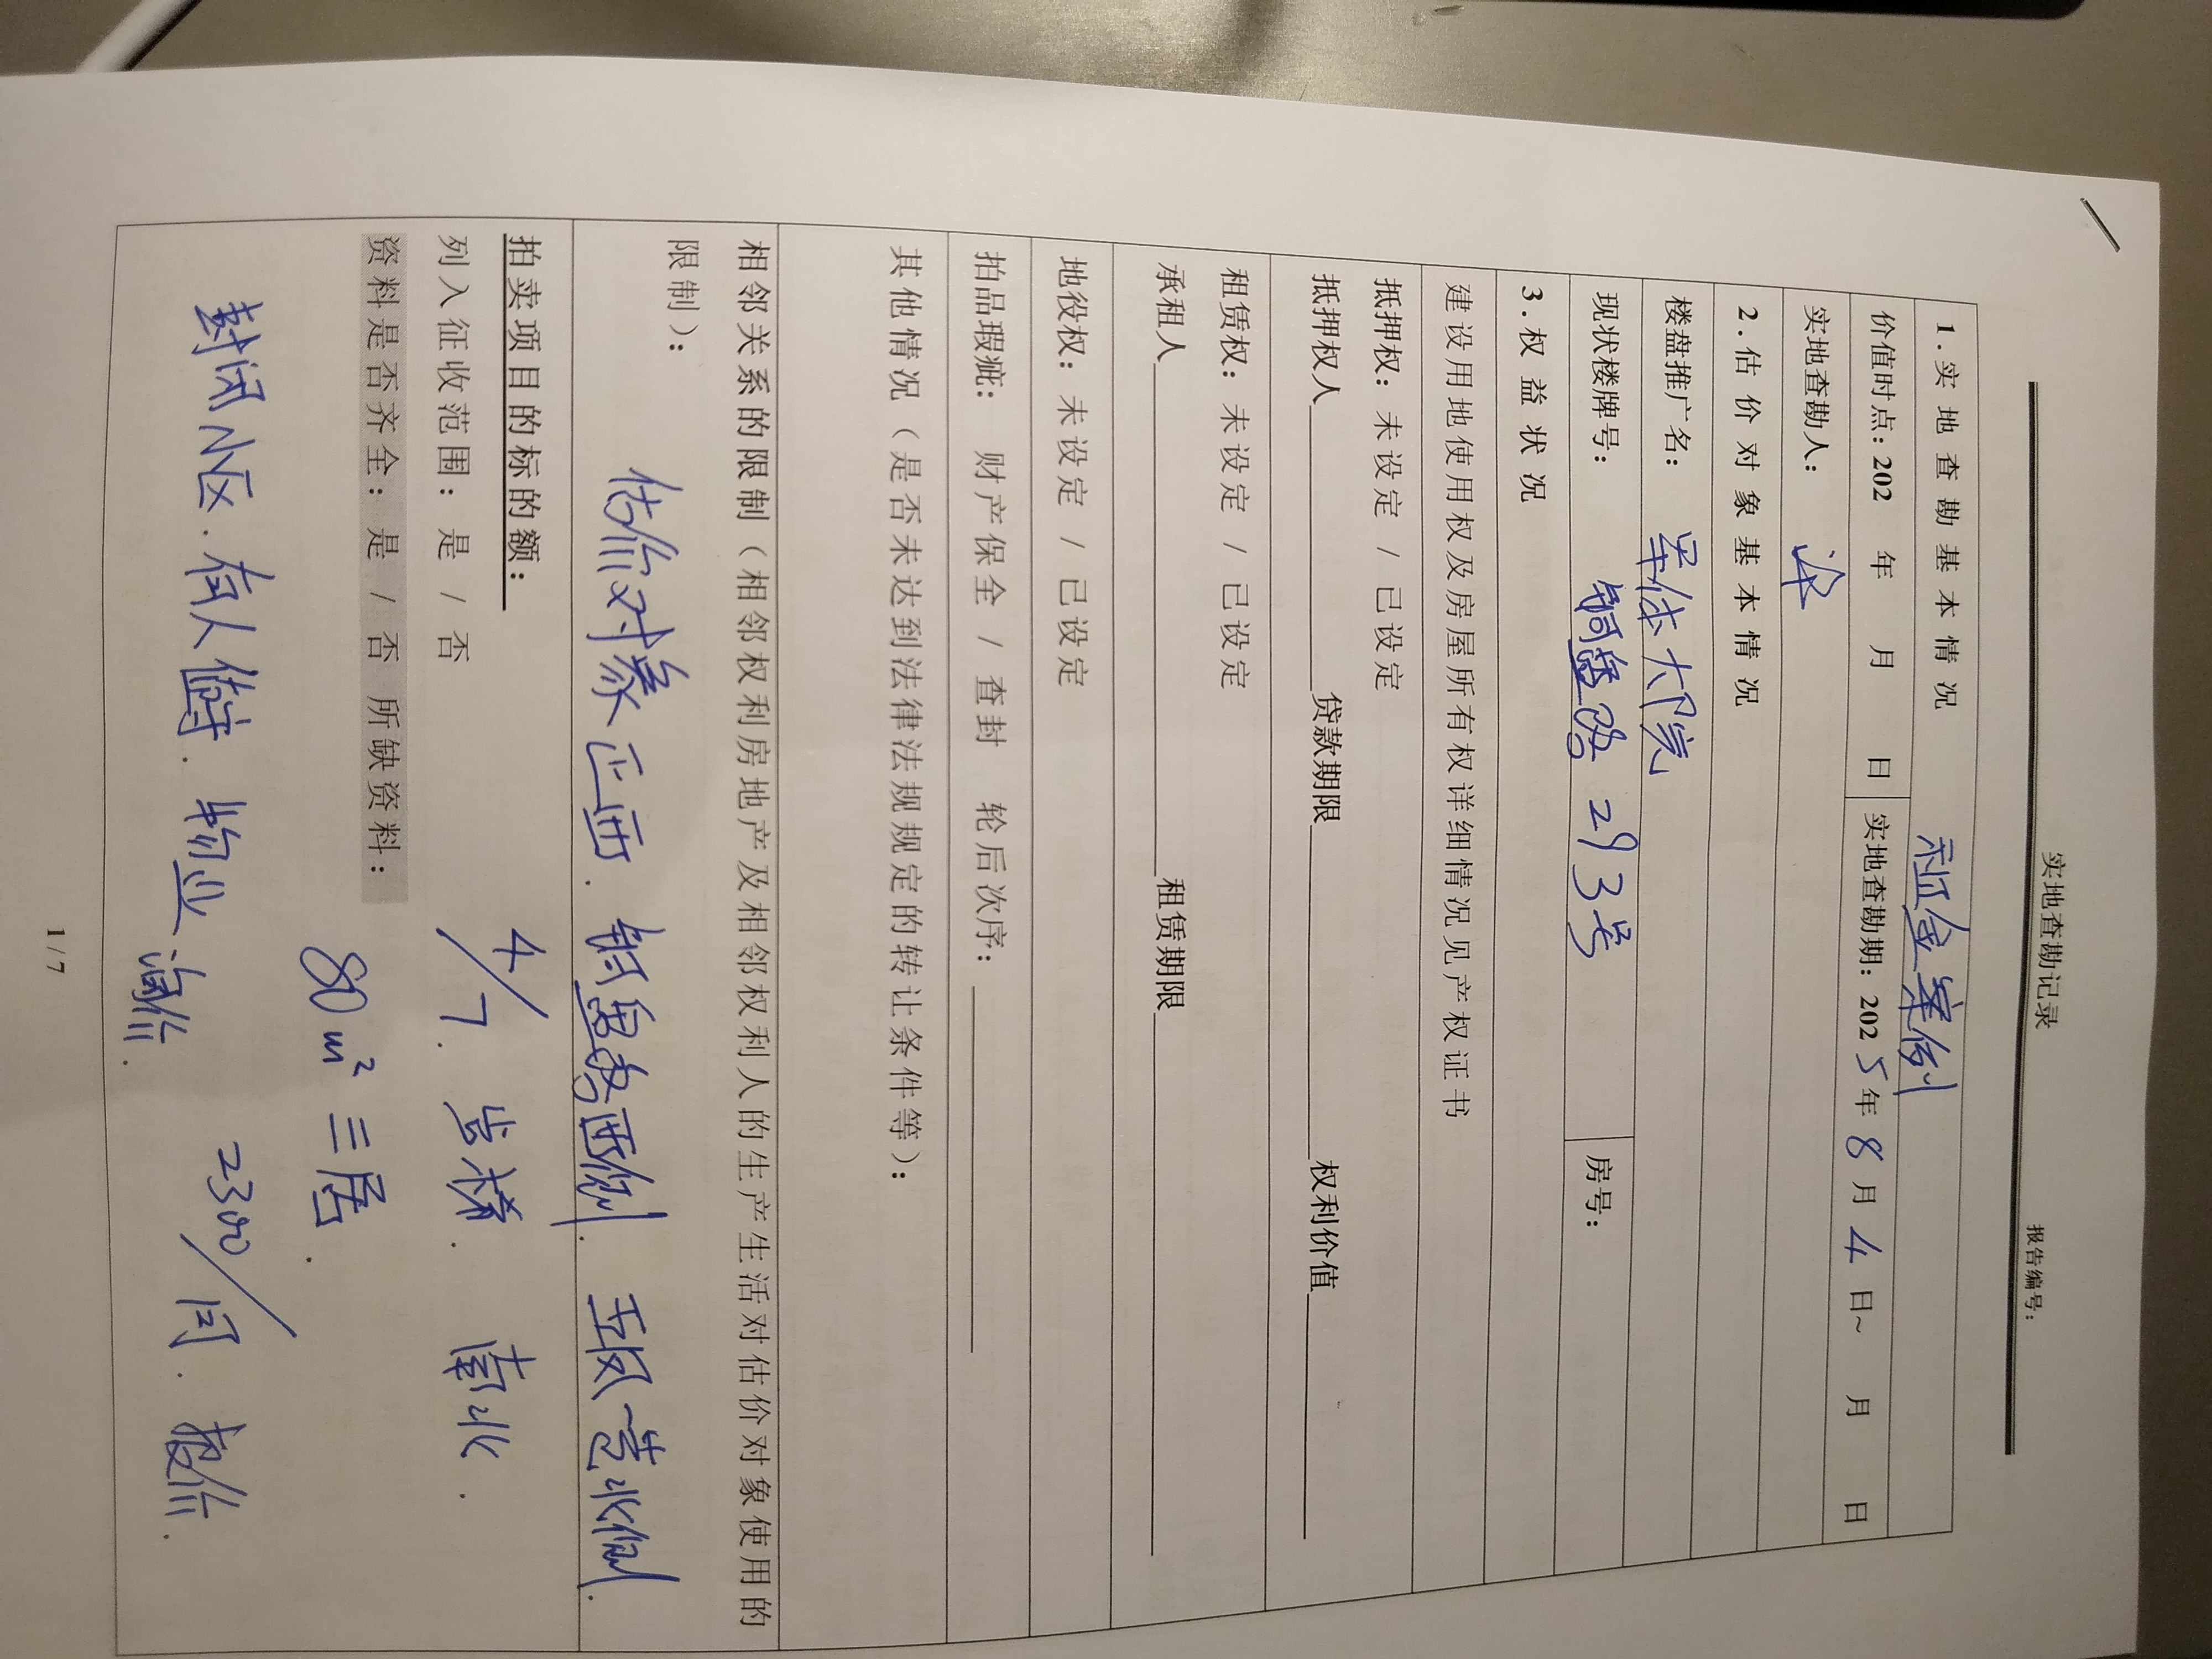 实地查勘记录
报告编号:
1.实地查勘基本情况 租金案例
价值时点:202 年 月 日 实地查勘期:2025年8月4日~ 月 日
实地查勘人:
2.估价对象基本情况
楼盘推广名: 大院
现状楼牌号: 路293号 房号:
3.权益状况
建设用地使用权及房屋所有权详细情况见产权证书
抵押权:未设定 / 已设定
抵押权人 贷款期限 权利价值
租赁权:未设定 / 已设定
承租人 租赁期限
地役权:未设定 / 已设定
拍品瑕疵: 财产保全 / 查封 轮后次序:
其他情况(是否未达到法律法规规定的转让条件等):
相邻关系的限制(相邻权利房地产及相邻权利人的生产生活对估价对象使用的
限制):
估价对象正西. 路西侧. 北侧.
拍卖项目的标的额:
4/7. 南北.
列入征收范围: 是 / 否
资料是否齐全: 是 / 否 所缺资料:
80m² 三居.
封闭小区.有人值守.物业 2300/月.报价.
询价.
1/7